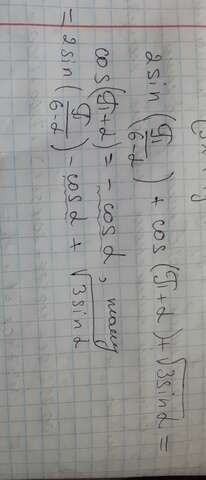 2 sin (π/6-α) + cos (π + α) + √3sinα =
cos (π + α) = - cos α, тому
= 2 sin (π/6-α) - cos α + √3sinα